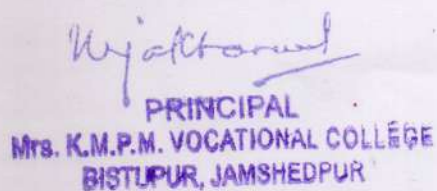 PRINCIPAL
Mrs. K.M.P.M. VOCATIONAL COLLEGE
BISTUPUR, JAMSHEDPUR